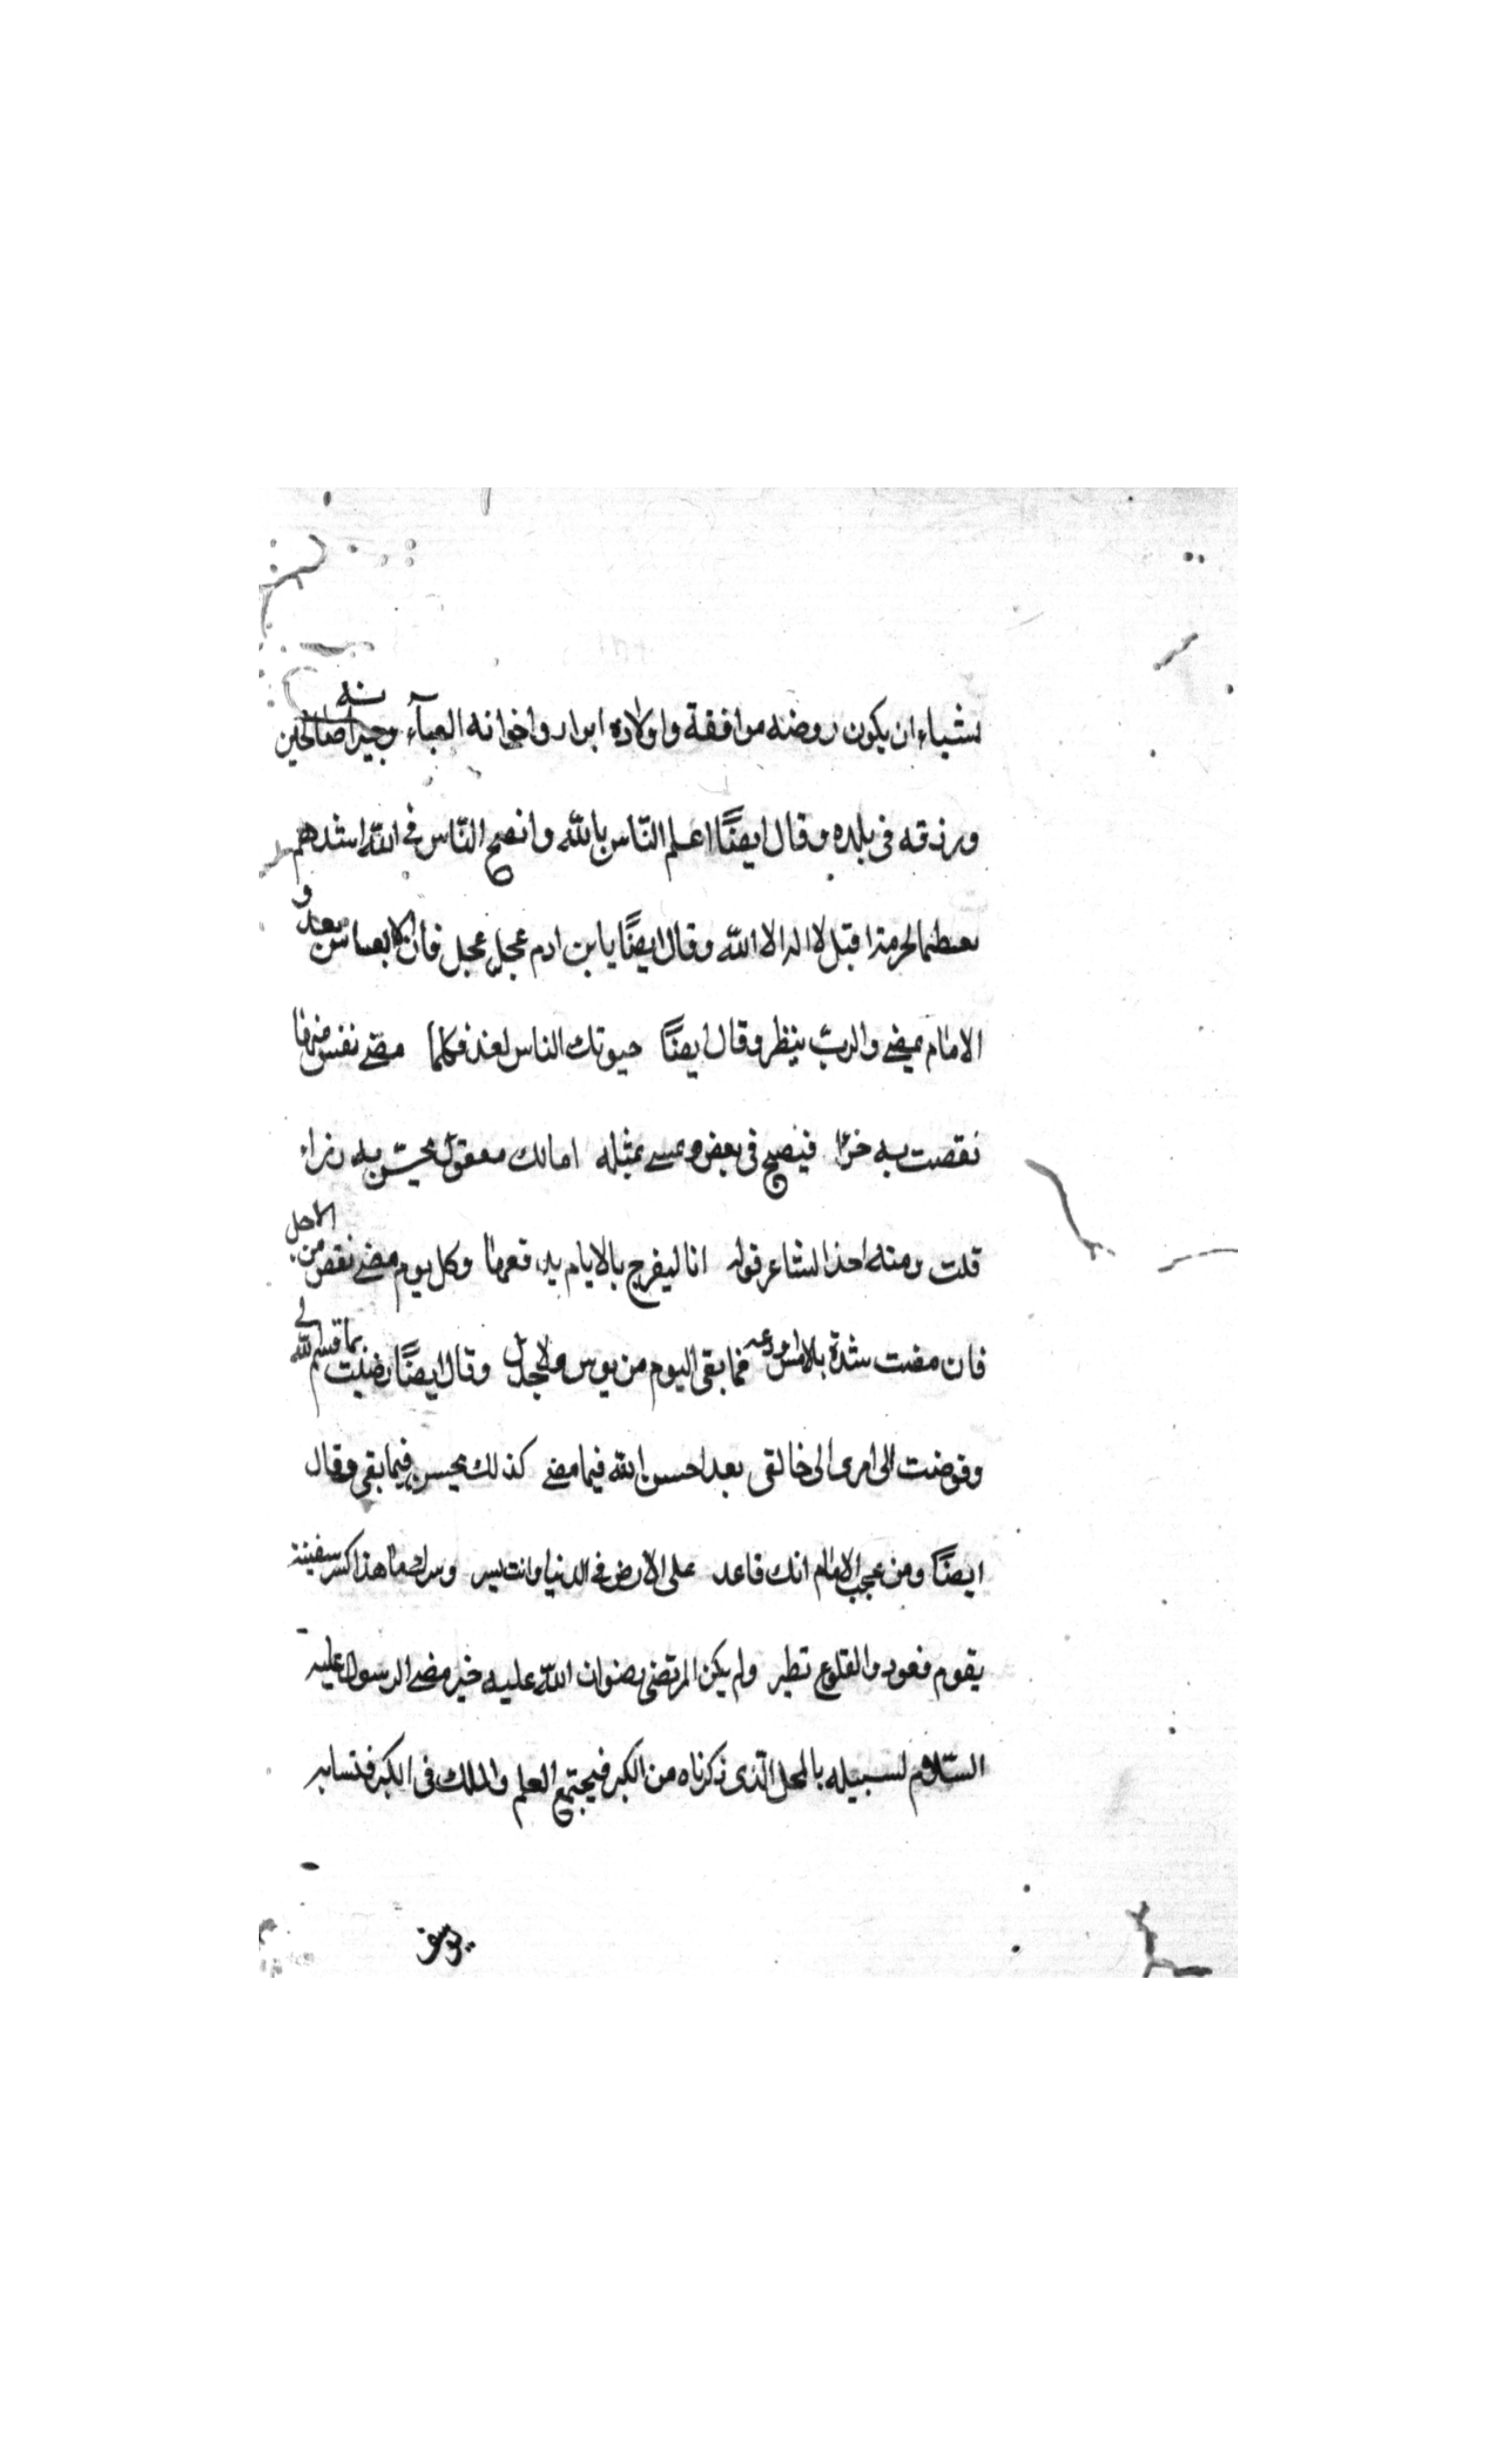 اشياء ان يكون زوجته موافقة واولاده ابرار واخوانه العباء وجيرانه صالحين
ورزقه فى بلده وقال ايضًا اعلم الناس بالله وانصح الناس فى الله اشدهم
تعظيما لحرمة اقبل لا اله الا الله وقال ايضًا يا بن ادم عجل عجل فان الانفاس تعد و
الامام يمضى والرب ينظر وقال ايضًا حيوتك انفاس تعد فكلما مضى نفس منها
نقصت به جزا فيصبح فى بعض ويمسى بمثله امالك معقول تحسّ به رزاء
قلت ومنه اخذ الشاعر قوله انا ليفرح بالايام وكل يوم مضى نقص من الاجل
فان مضت شدة بالامس فما بقى اليوم من بوس ولا جدل وقال ايضًا رضيت بما قسم الله لى
وفوضت الى امرى الى خالقى بعد احسن الله فيما مضى كذلك يحسن فيما بقى وقال
ايضًا ومن عجب الايام انك قاعد على الارض فى الدنيا وانت تسير هذا كسر سفينة
بقوم قعود والقلوع تطير ولم يكن المرتضى رضوان الله عليه حين مضى الرسول عليه
السلام لسبيله بالمحل الذى ذكرناه من الكبر فيجتمع العلم والملك فى الكبر